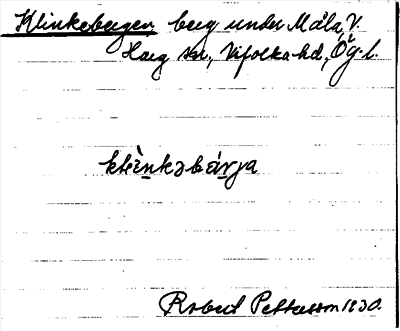 Klinkebergen, berg under Måla, V.
Harg sn, Vifolka hd, Ög. l.
klìnkəbǽrja
Robert Pettersson 1930.